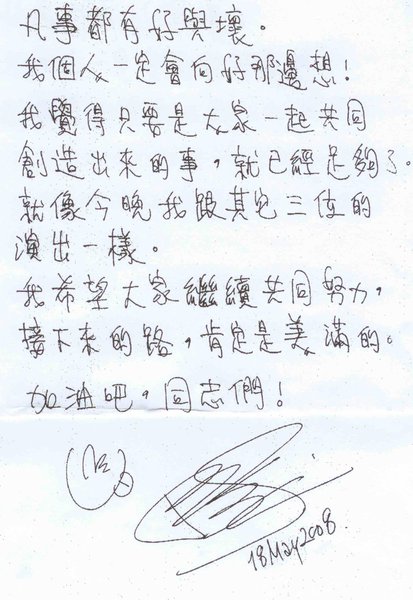 凡事都有好與壞。
我個人一定會向好那邊想!
我覺得只要是大家一起共同
創造出來的事，就已經足夠了。
就像今晚我跟其它三位的
演出一樣。
我希望大家繼續共同努力，
接下來的路，肯定是美滿的。
加油吧，同志們!
18May2008.